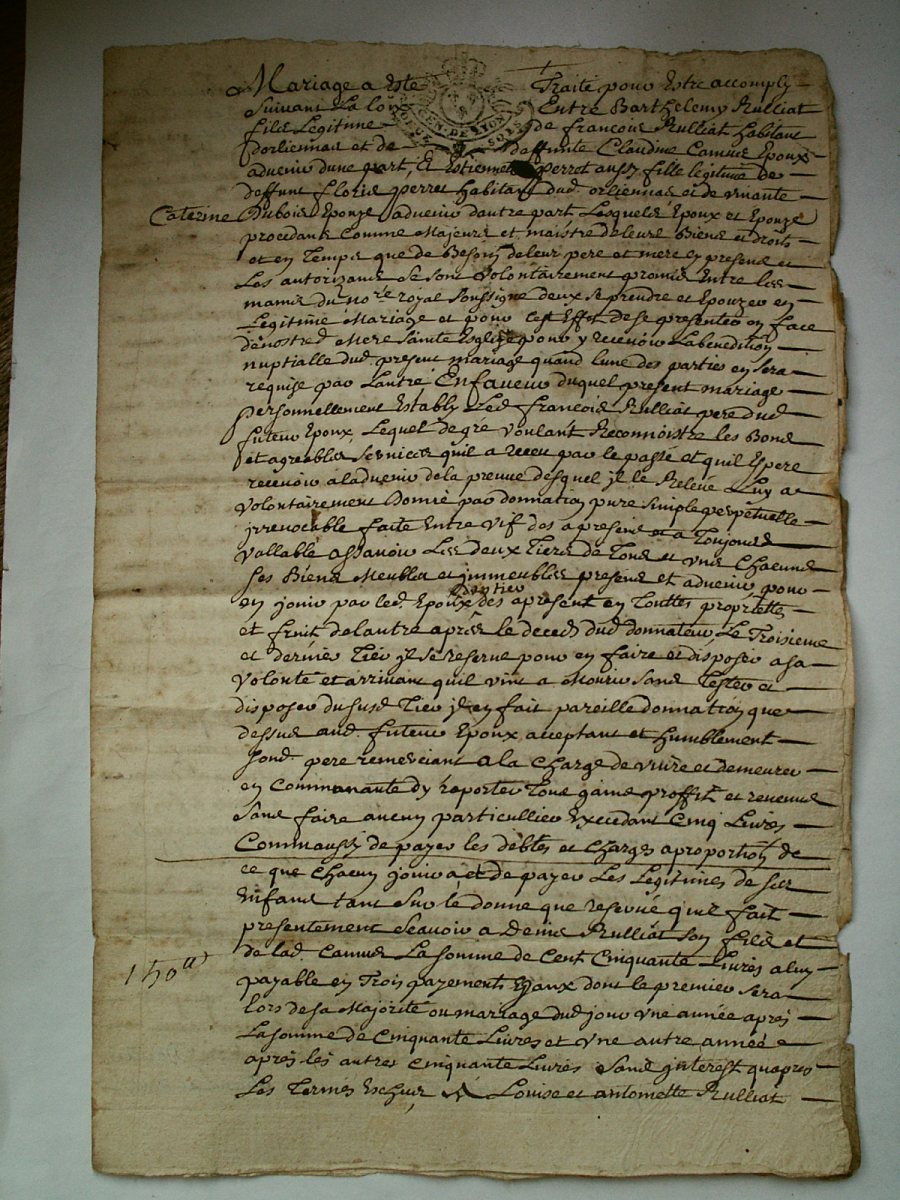 Mariage a Esté Traité pour Estre accomply
Suivant La loix Entre Barthelemy Rulliat
fils Légitime de francois Rulliat habitant
dorliennas et de deffunte Claudine Camus Epoux
advenir dune part, Et Estiennette perret aussy fille légitime de
deffunt floris perret habitant dud. orliennas et de vivante
Caterine Dubois Epouze advenir dautre part, Lesquels Epoux et Epouze
procedans Comme Majeurs et maistre de leurs Biens et droits
et en Temps que de Besoin de leur pere et mere cy presens et
Les autorizans se sont volontairement promis Entre les
mains du nore royal soussigné deux se prendre et Epouzer en
Légitime Mariage et pour cest Effet de se presenter en face
de nostred. Mere Sainte Esglize pour y recevoir La benediction
nuptialle dud. present mariage quand lune des parties en sera
requise par Lautre En faveur duquel present mariage
personnellement Estably Led. francois Rulliat pere dud.
futeur Epoux, Lequel de gré voulant Reconnoistre les Bons
et agreables Services quil a receu par le passé et quil Espere
recevoir à ladvenir de la preuve desquel jl le Releve Luy a
volontairement Donné par donnation pure simple perpetuelle
jrrevocable faite Entre vif des a present et a Toujours
vallable assavoir Les deux Tiers de Tous et uns Chacuns
ses Biens Meubles et jmmeubles presens et advenir pour
en jouir par led. Epoux dès apresent en Touttes proprietés
et fruit de lautre après le deceds dud. donnateur, Le Troisieme
et dernier Tier jl se reserve pour en faire et disposer a sa
volonté et arrivant quil vint a Mourir sans Tester et
disposer du susd. Tier jl en fait pareille donnation que
dessus aud. futeur Epoux acceptant et humblement
sond. pere remerciant a la charge de vivre et demeurer
en Communauté d'y reporter Tous gains proffit et revenus
sans faire aucun particullier Excedant Cinq Livres
Comm'aussy de payer les debtes et Charges a proportion de
ce que chacun jouira et de payer Les Légitimes de ses
Enfans tant sur le donné que reservé quil fait
presentement Scavoir a Denis Rulliat son fils et
de lad. Camus La somme de Cent Cinquante Livres a luy
150tt
payable en Trois payements Egaux dont le premier sera
lors de sa Majorité ou mariage dud. jour une année après
La somme de Cinquante Livres et une autre année
après les autres Cinquante Livres sans jnterest quapres
Les Termes Eschus & Louise et antoinette Rulliat